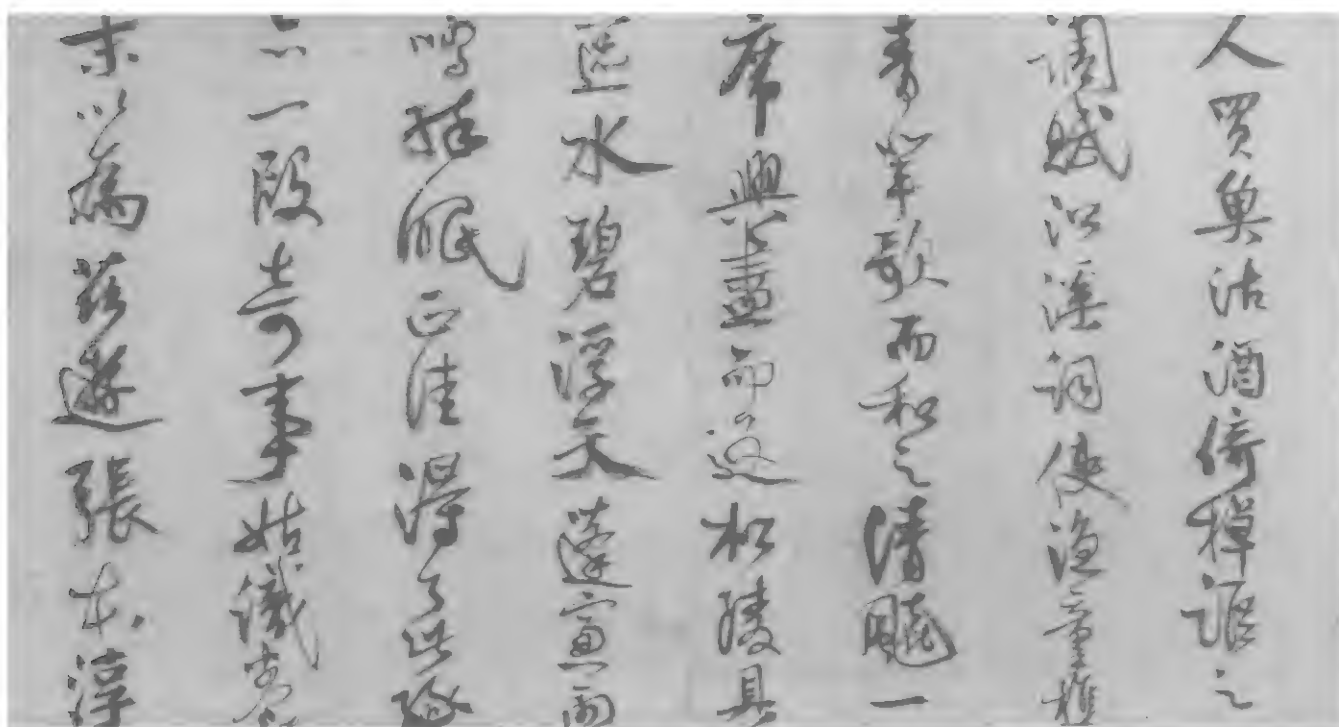 人買魚沽酒倚棹謳之
調賦溪詞使漁童樵
青輩歌而和之清飈一
席興盡而返松陵具
區水碧浮天蓬窗雨
鳴醉眠正佳得了此緣
亦一段奇事姑識卷
末以為茲遊張本淳